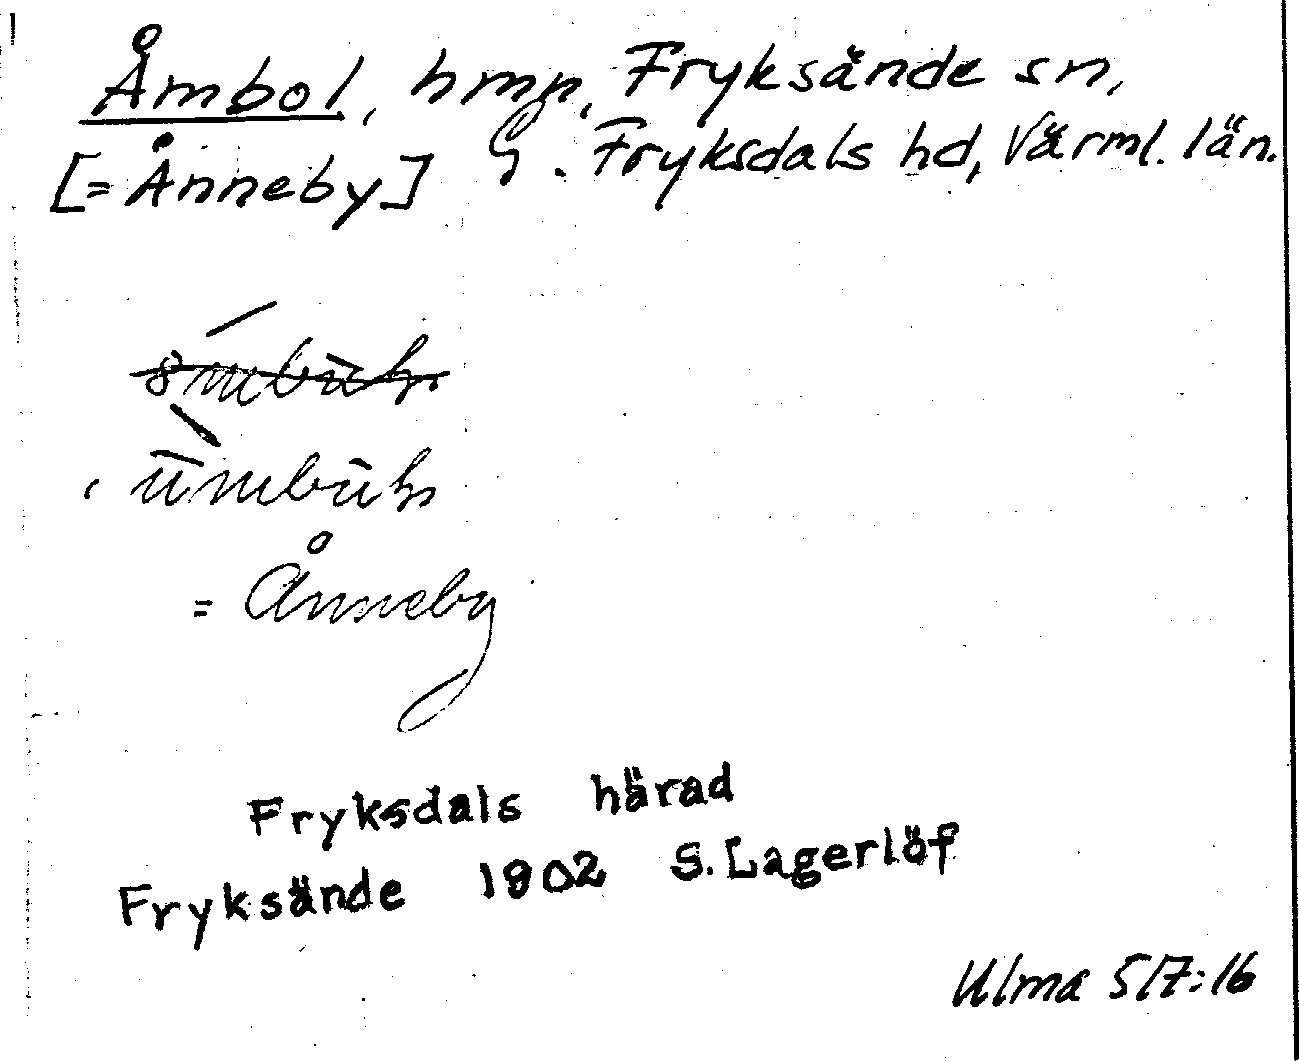 Åmbol, hmn, Fryksände sn,
[= Ånneby] G. Fryksdals hd, Värml. län.
= Ånneby
Fryksdals härad
Fryksände 1902 S. Lagerlöf
Ulma 517:16